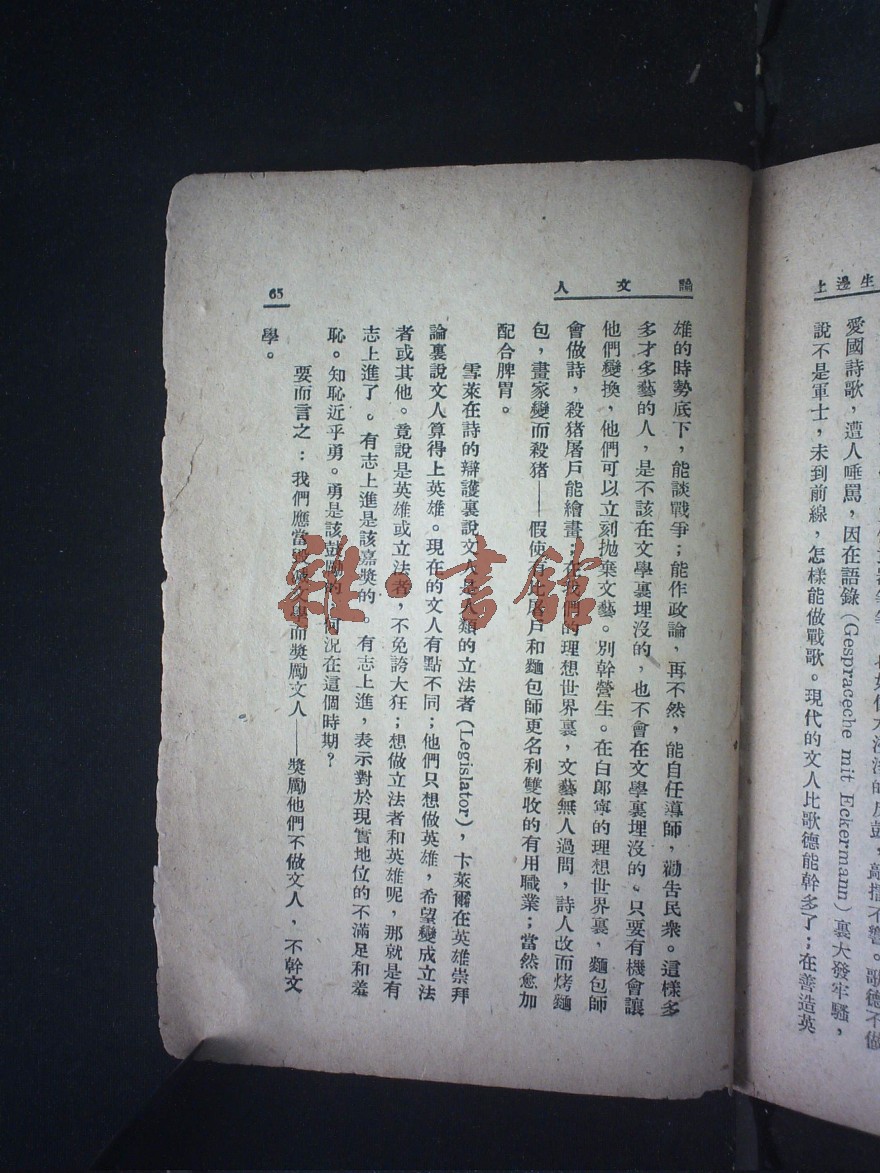 上邊生
愛國詩歌，遭人唾罵，因在語錄(Gespraceche mit Eckermann)裏大發牢騷，
說不是軍士，未到前線，怎樣能做戰歌。現代的文人比歌德能幹多了；在善造英
人文論
雄的時勢底下，能談戰爭；能作政論，再不然，能自任導師，勸告民衆。這樣多
多才多藝的人，是不該在文學裏埋沒的，也不會在文學裏埋沒的。只要有機會讓
他們變換，他們可以立刻拋棄文藝。別幹營生。在白郎寧的理想世界裏，麵包師
會做詩，殺猪屠戶能繪畫；在我們的理想世界裏，文藝無人過問，詩人改而烤麵
包，畫家變而殺猪——假使有比屠戶和麵包師更名利雙收的有用職業；當然愈加
配合脾胃。
雪萊在詩的辯護裏說文人是人類的立法者(Legislator)，卞萊爾在英雄崇拜
論裏說文人算得上英雄。現在的文人有點不同；他們只想做英雄，希望變成立法
者或其他。竟說是英雄或立法者，不免誇大狂；想做立法者和英雄呢，那就是有
志上進了。有志上進是該嘉獎的。有志上進，表示對於現實地位的不滿足和羞
恥。知恥近乎勇。勇是該鼓勵的，何況在這個時期？
要而言之：我們應當毀滅文學而獎勵文人——獎勵他們不做文人，不幹文
學。
65
雜·書館